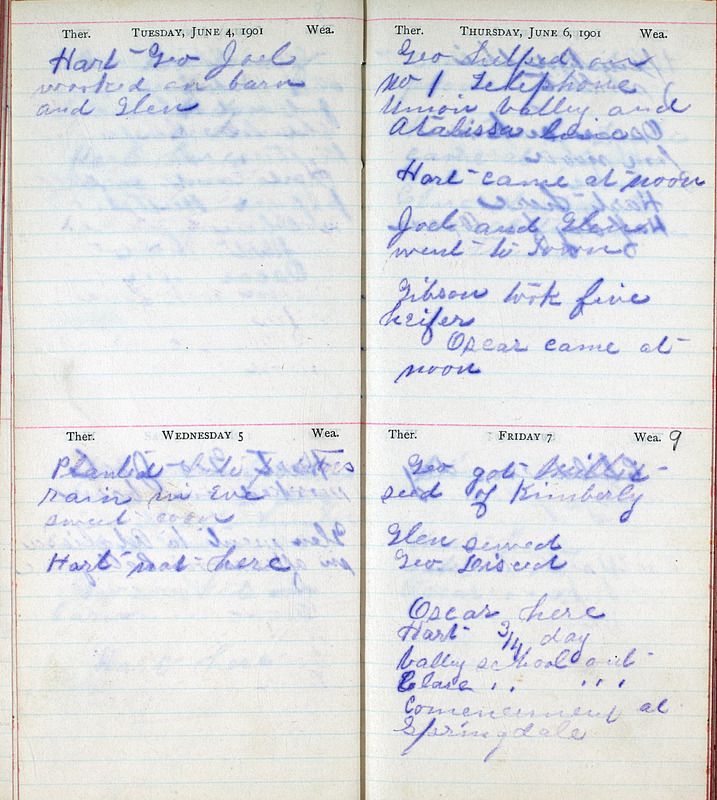 Ther. TUESDAY, JUNE 4, 1901 Wea.
Hart Geo Joel
worked on barn
and Glen
Ther. WEDNESDAY 5 Wea.
Planted
rain in Eve
sweet corn
Hart not here
Ther. THURSDAY, JUNE 6, 1901 Wea.
Geo helped on
No 1 Telephone
Union Valley and
Atalissa line
Hart came at noon
Joel and Glen
went to town
Gibson took five
heifer
Oscar came at
noon
Ther. FRIDAY 7 Wea. 9
Geo got millet
seed of Kimberly
Glen sewed
Geo Disced
Oscar here
Hart 3/4 day
Valley school out
Clara " "
Comencement at
Springdale